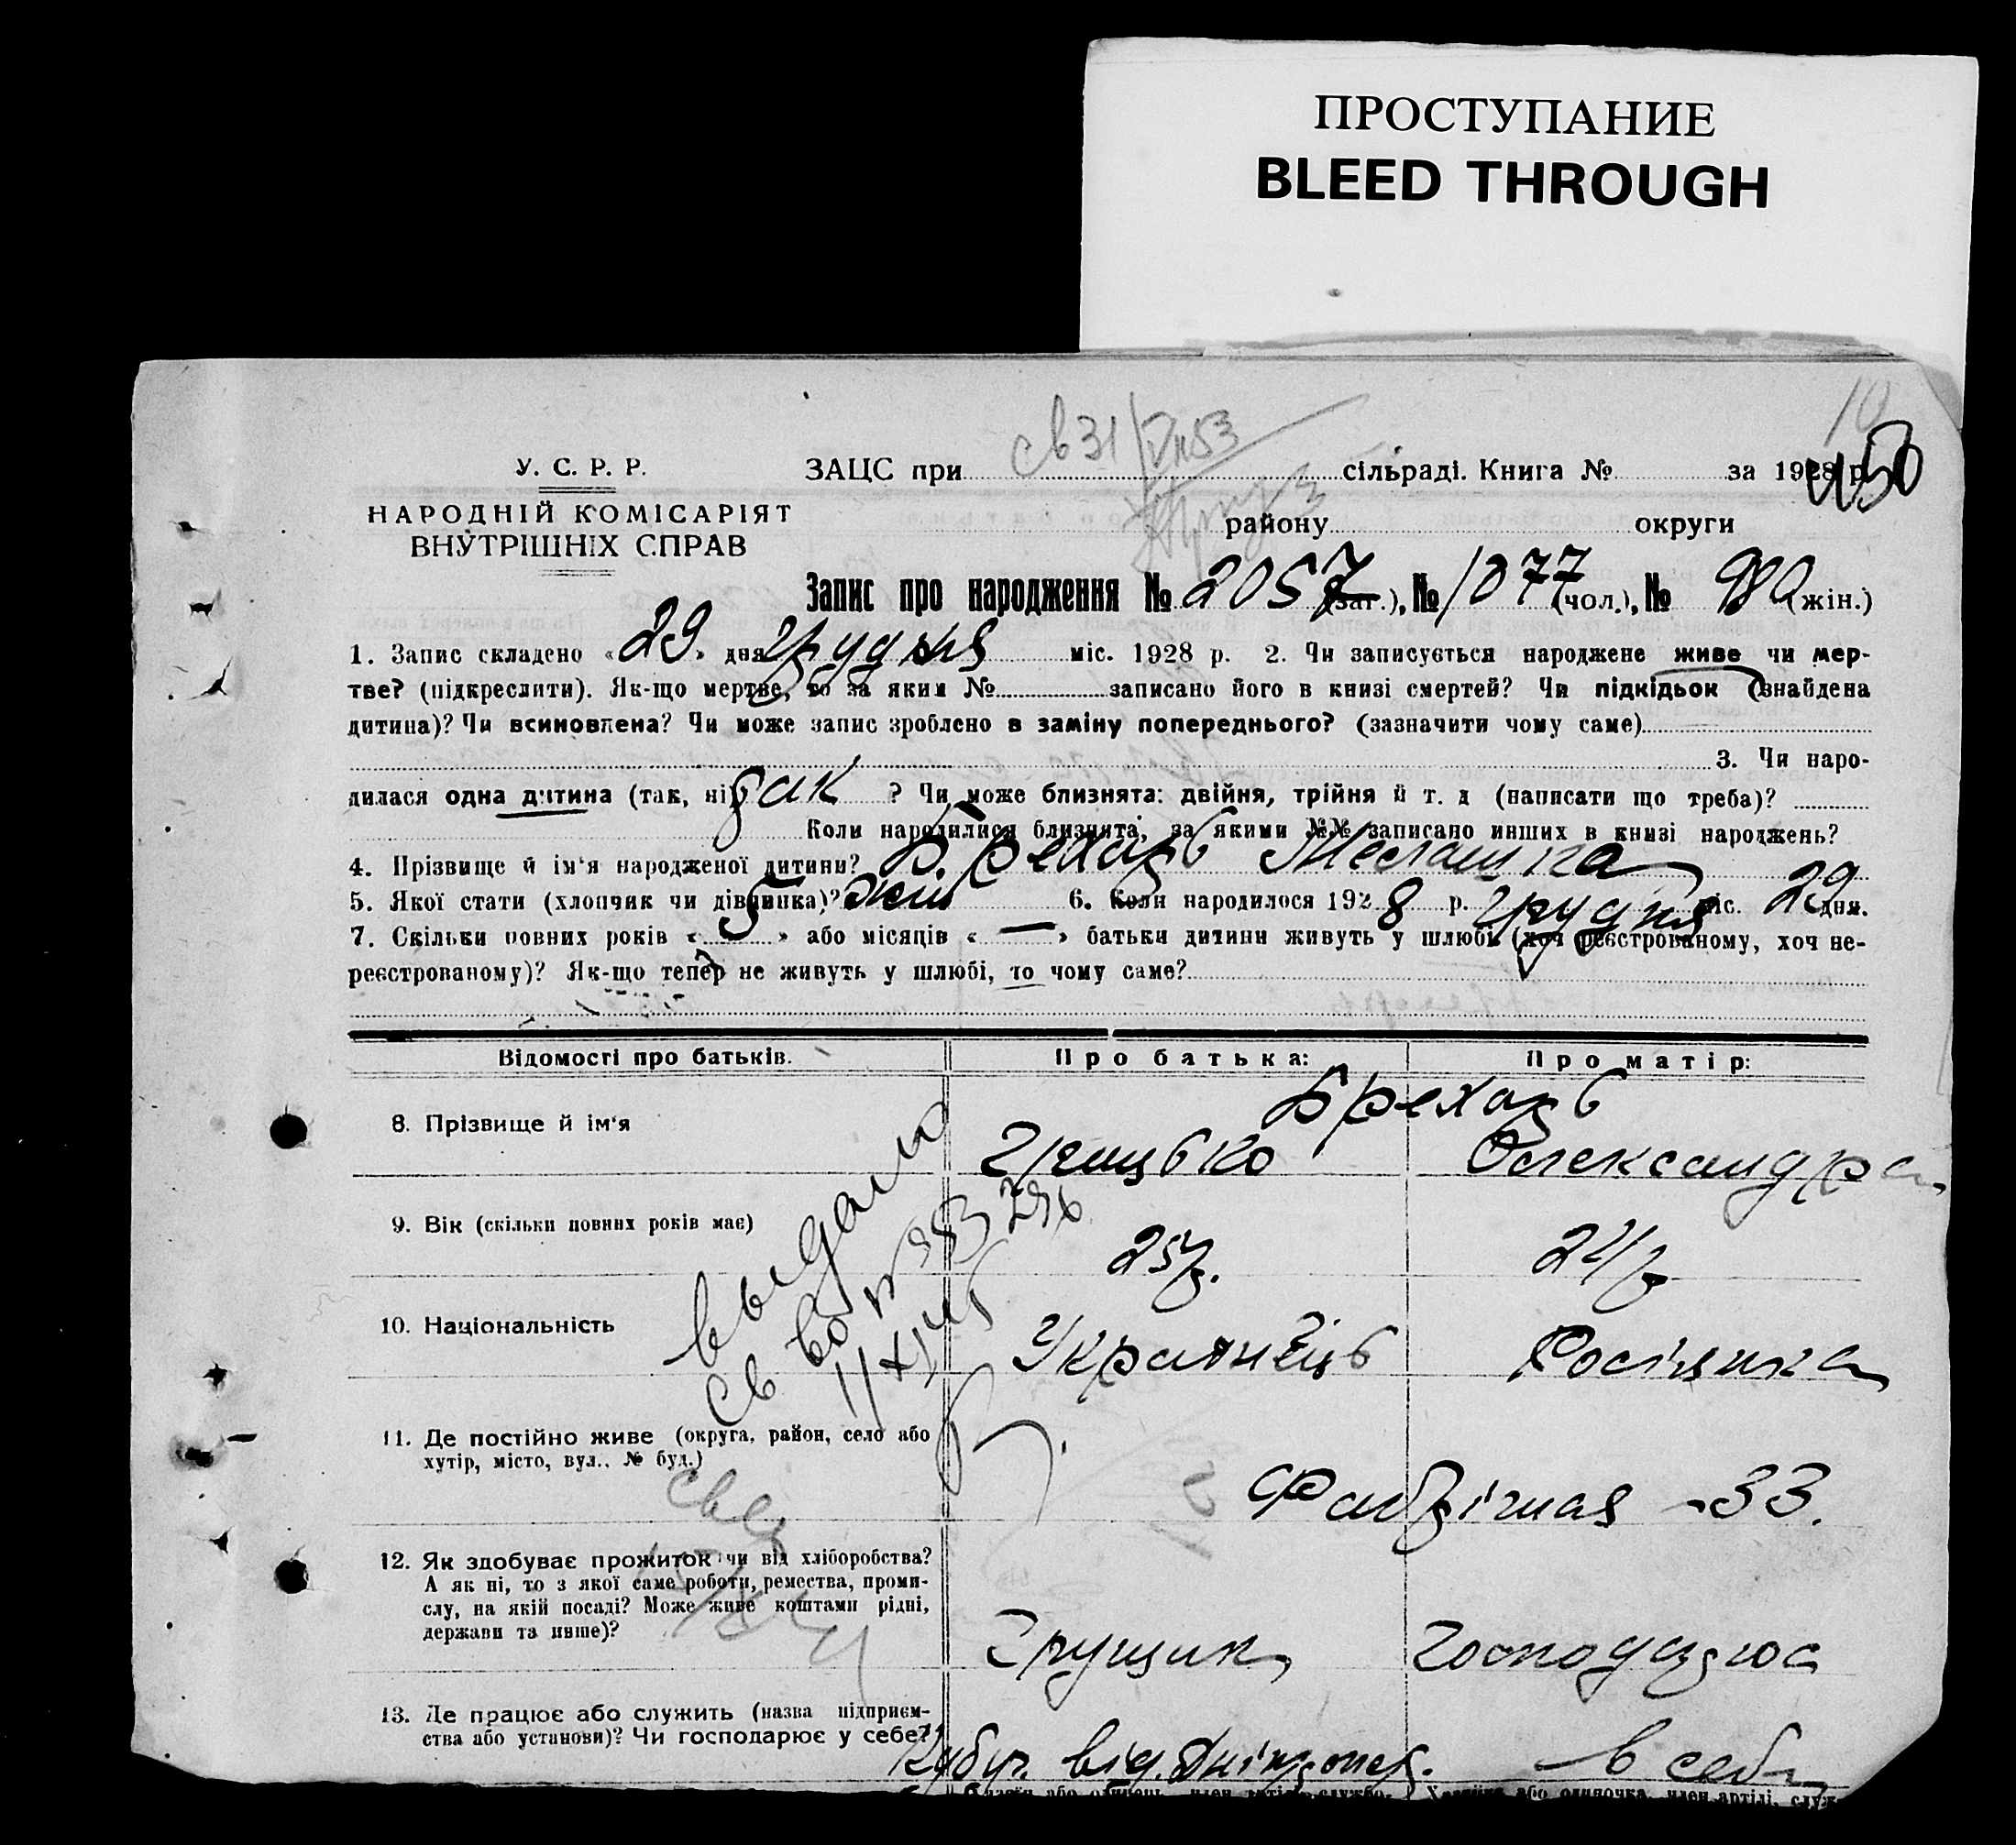 ПРОСТУПАНИЕ
BLEED THROUGH
10
У. С. Р. Р.
ЗАЦС при св 31/ сільраді. Книга № за 1928 р.
НАРОДНІЙ КОМІСАРІЯТ
ВНУТРІШНІХ СПРАВ
району округи
Запис про народження № 2057 (заг.), № 1077 (чол.), № 980 (жін.)
1. Запис складено «29» дня грудня міс. 1928 р. 2. Чи записується народжене живе чи мер-
тве? (підкреслити). Як-що мертве, то за яким № записано його в книзі смертей? Чи підкідьок (знайдена
дитина)? Чи всиновлена? Чи може запис зроблено в заміну попереднього? (зазначити чому саме)
3. Чи наро-
дилася одна дитина (так, ні) так ? Чи може близнята: двійня, трійня й т. д (написати що треба)?
Коли народилися близнята, за якими №№ записано инших в книзі народжень?
4. Прізвище й ім'я народженої дитини? Брехарь
5. Якої стати (хлопчик чи дівчинка)? жін 6. Коли народилося 1928 р. грудня міс. 29 дня.
7. Скільки повних років «5» або місяців «—» батьки дитини живуть у шлюбі (хоч реєстрованому, хоч не-
реєстрованому)? Як-що тепер не живуть у шлюбі, то чому саме?
Відомості про батьків. Про батька: Про матір:
Брехарь
8. Прізвище й ім'я Грицько Олександра
9. Вік (скільки повних років має) 25 р. 24 р
10. Національність Українець Росіянка
выдано
св во №
11. Де постійно живе (округа, район, село або
хутір, місто, вул., № буд.)
Фабрічная - 33.
12. Як здобуває прожиток чи від хліборобства?
А як ні, то з якої саме роботи, ремества, проми-
слу, на якій посаді? Може живе коштами рідні,
держави та инше)?
Грущик Господарює
13. Де працює або служить (назва підприєм-
ства або установи)? Чи господарює у себе?
від. в себе